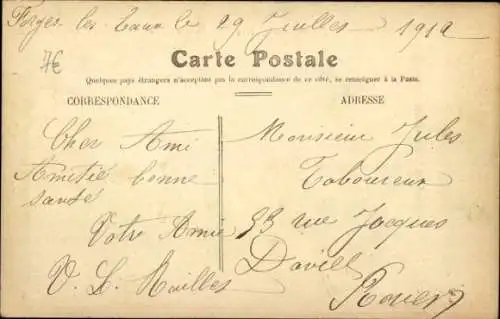 Forges les Eaux le 29 Juillet 1912
7€
Carte Postale
Quelques pays étrangers n'acceptant pas la correspondance de ce côté, se renseigner à la Poste.
CORRESPONDANCE
ADRESSE
Cher Ami
Amitié bonne
santé
Votre Amie
V. L. Mailles
Monsieur Jules
Taboureux
33 rue Jacques
Daviel
Rouen